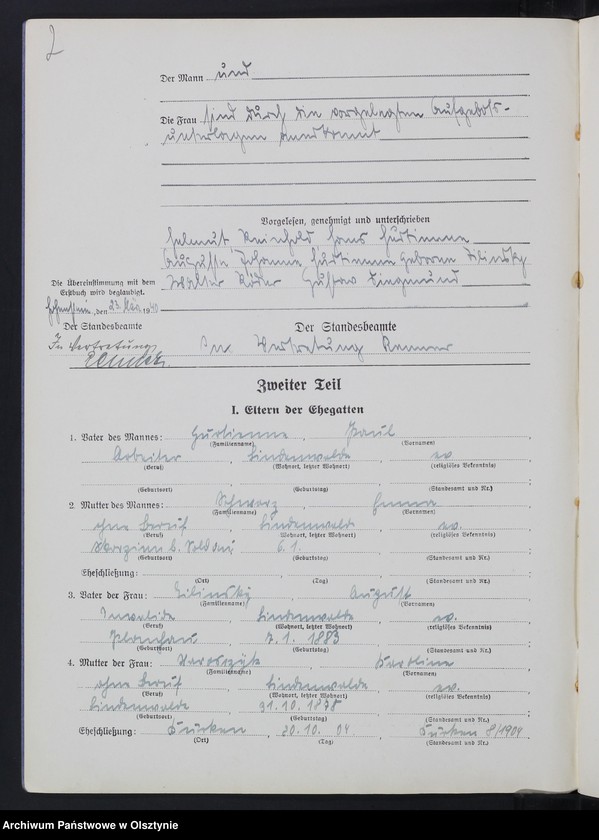 2
Der Mann und
Die Frau sind durch die vorgelegten Aufgebots-
unterlagen anerkannt
Vorgelesen, genehmigt und unterschrieben
Helmut Reinhold Hans Gurtienne
Auguste Johanna Gurtienne geborene Zilinsky
Walter Röder Gustav
Die Übereinstimmung mit dem
Erstbuch wird beglaubigt.
Hohenstein, den 23. März 1940
Der Standesbeamte
In Vertretung
Der Standesbeamte
In Vertretung
Zweiter Teil
I. Eltern der Ehegatten
1. Vater des Mannes: Gurtienne, Paul
(Familienname) (Vornamen)
Arbeiter, Lindenwalde, ev.
(Beruf) (Wohnort, letzter Wohnort) (religiöses Bekenntnis)
(Geburtsort) (Geburtstag) (Standesamt und Nr.)
2. Mutter des Mannes: Schwarz, Emma
(Familienname) (Vornamen)
ohne Beruf, Lindenwalde, ev.
(Beruf) (Wohnort, letzter Wohnort) (religiöses Bekenntnis)
b. Soldau, 6. 1.
(Geburtsort) (Geburtstag) (Standesamt und Nr.)
Eheschließung:
(Ort) (Tag) (Standesamt und Nr.)
3. Vater der Frau: Zilinsky, August
(Familienname) (Vornamen)
Invalide, Lindenwalde, ev.
(Beruf) (Wohnort, letzter Wohnort) (religiöses Bekenntnis)
7. 1. 1883
(Geburtsort) (Geburtstag) (Standesamt und Nr.)
4. Mutter der Frau: Karoline
(Familienname) (Vornamen)
ohne Beruf, Lindenwalde, ev.
(Beruf) (Wohnort, letzter Wohnort) (religiöses Bekenntnis)
Lindenwalde
(Geburtsort) (Geburtstag) (Standesamt und Nr.)
Eheschließung: Kurken, 30. 10. 04, Kurken 8/1904
(Ort) (Tag) (Standesamt und Nr.)
Archiwum Państwowe w Olsztynie